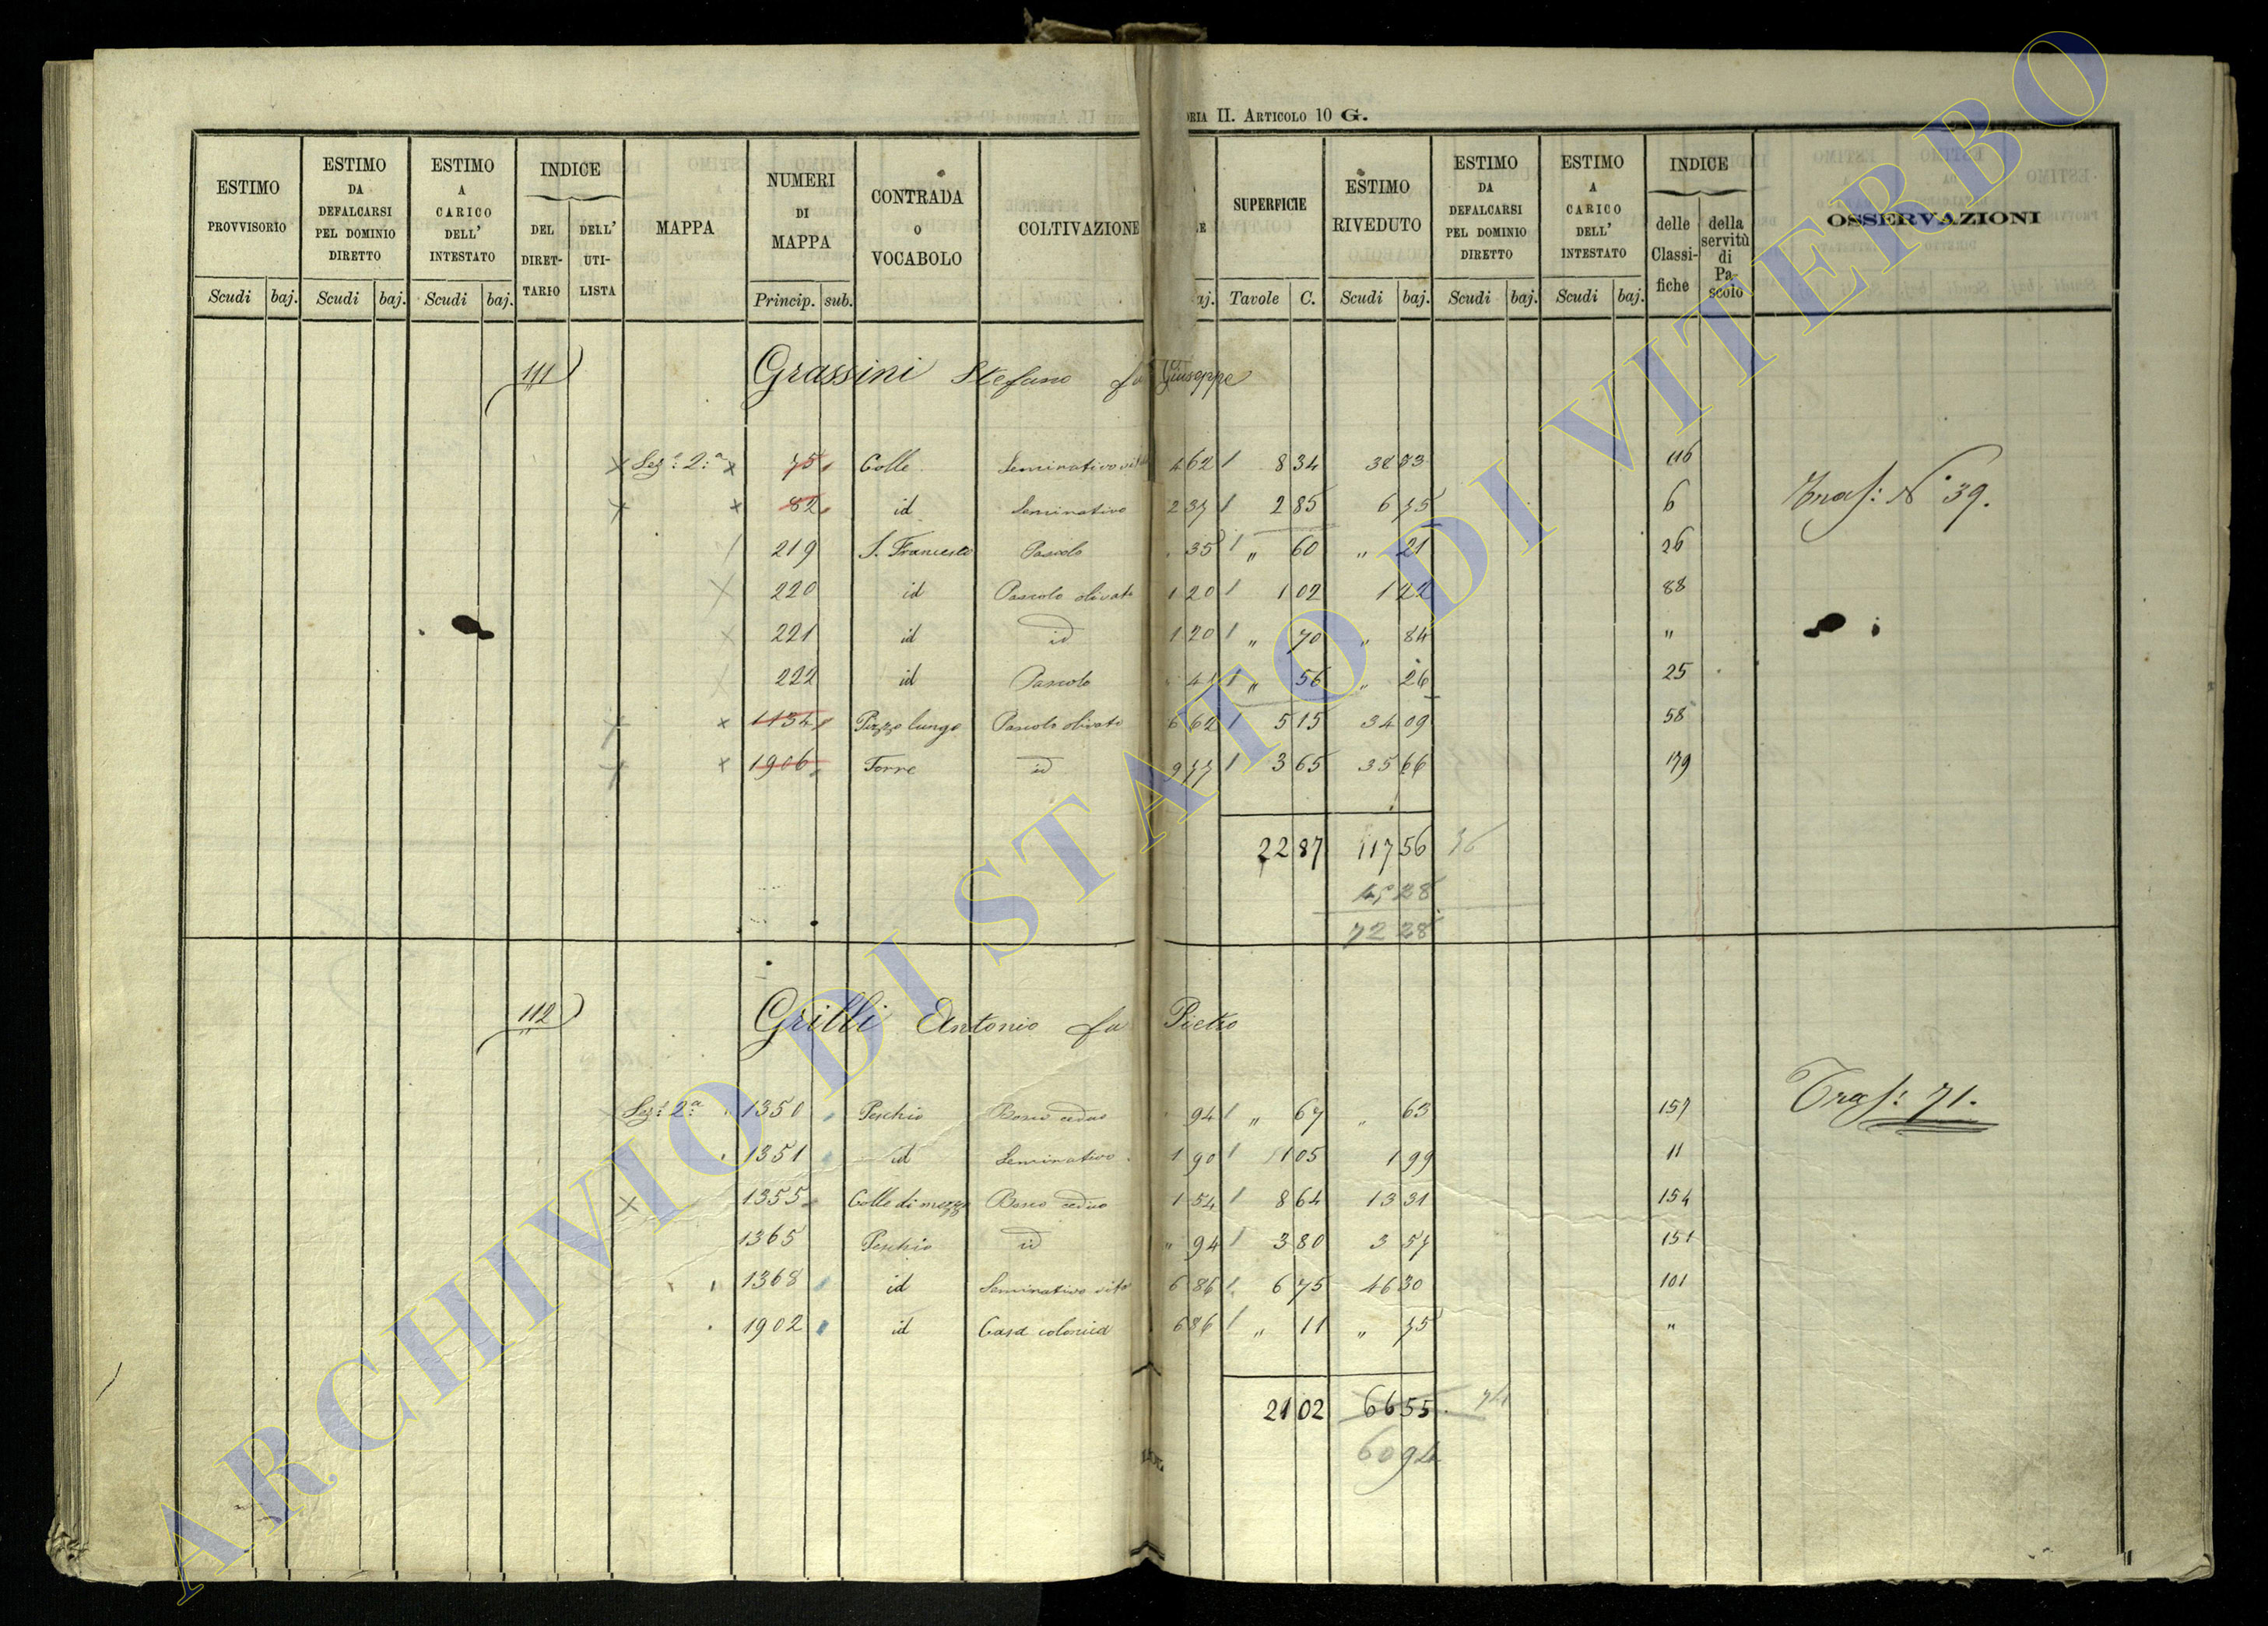 ORIA II. ARTICOLO 10 G.
ESTIMO PROVVISORIO
ESTIMO DA DEFALCARSI PEL DOMINIO DIRETTO
ESTIMO A CARICO DELL' INTESTATO
INDICE
DEL DIRETTARIO
DELL' UTILISTA
MAPPA
NUMERI DI MAPPA
CONTRADA O VOCABOLO
COLTIVAZIONE
SUPERFICIE
ESTIMO RIVEDUTO
ESTIMO DA DEFALCARSI PEL DOMINIO DIRETTO
ESTIMO A CARICO DELL' INTESTATO
INDICE
delle Classifiche
della servitù di Pascolo
OSSERVAZIONI
Scudi baj. Scudi baj. Scudi baj. Princip. sub. aj. Tavole C. Scudi baj. Scudi baj. Scudi baj.
111 Grassini Stefano fu Giuseppe
Sez.e 2.a 75 Colle Seminativo vit 4 62 8 34 38 53 116
82 id Seminativo 2 37 2 85 6 75 6 Traf: N° 39.
219 S. Francesco Pascolo 35 " 60 " 21 26
220 id Pascolo olivato 1 20 1 02 1 22 88
221 id id 1 20 " 70 " 84 "
222 id Pascolo 47 " 56 " 26 25
1134 Pizzo lungo Pascolo olivato 6 62 5 15 34 09 58
1906 Torre id 9 77 3 65 35 66 179
22 87 117 56 36
45 28
72 28
112 Grilli Antonio fu Pietro
Sez.e 2.a 1350 Peschio Bosco ceduo 94 " 67 " 63 157 Traf: 71.
1351 id Seminativo 1 90 1 05 1 99 11
1355 Colle di mezzo Bosco ceduo 1 54 8 64 13 31 154
1365 Peschio id " 94 3 80 3 57 151
1368 id Seminativo vito 6 86 6 75 46 30 101
1902 id Casa colonica 6 86 " 11 " 75 "
21 02 66 55 74
60 94
ARCHIVIO DI STATO DI VITERBO